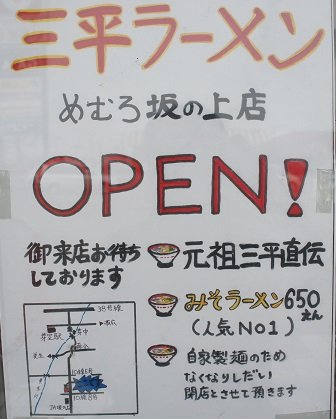 三平ラーメン
めむろ坂の上店
OPEN!
御来店お待ち
しております
元祖三平直伝
みそラーメン650えん
(人気NO1)
自家製麺のため
なくなりしだい
閉店とさせて頂きます
38号線
芽室駅
帯広